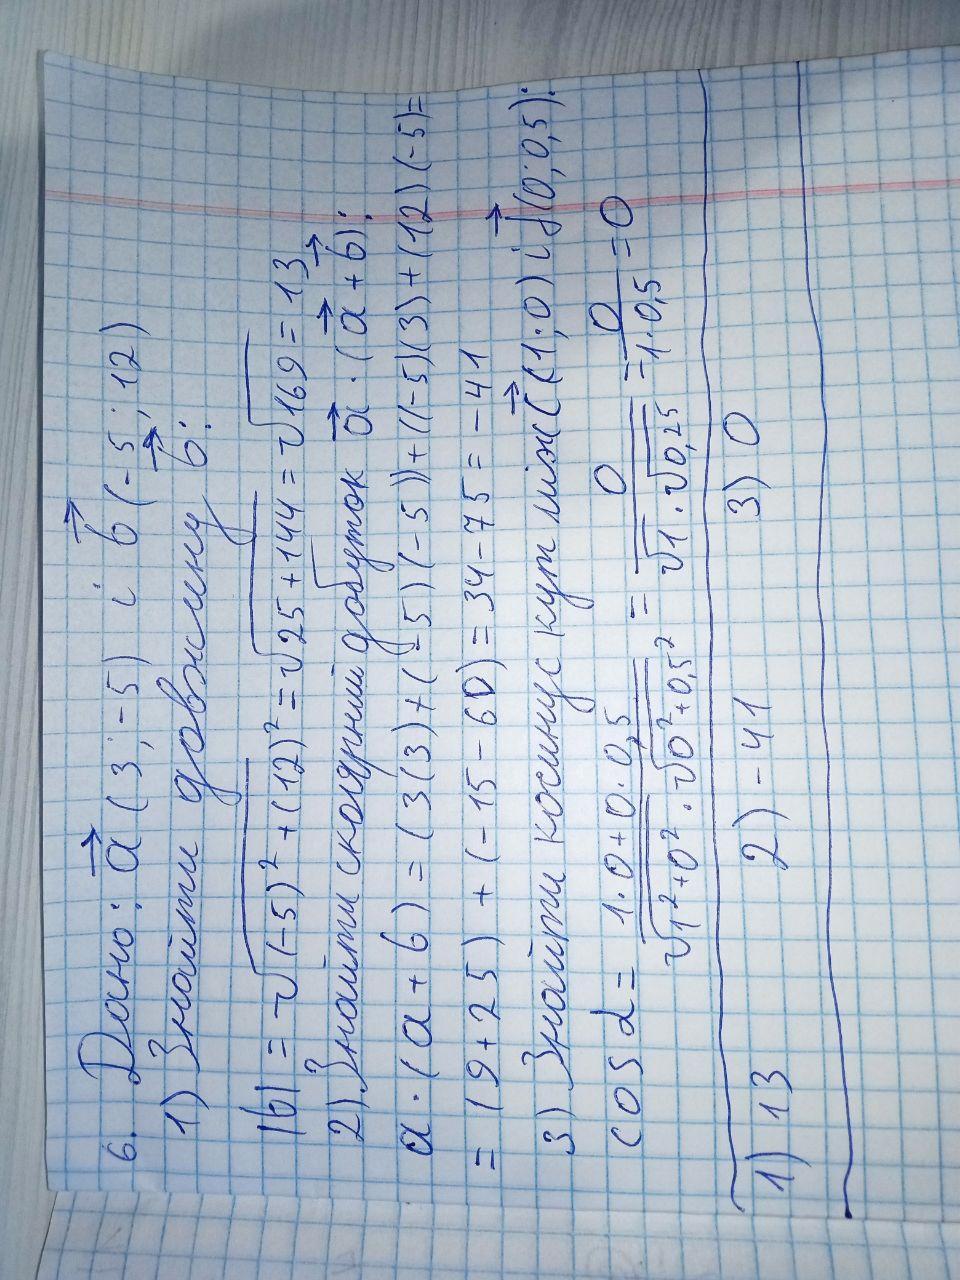 6. Дано: a (3; -5) і b (-5; 12)
1) Знайти довжину b:
|b| = √(-5)² + (12)² = √25 + 144 = √169 = 13
2) Знайти скалярний добуток a · (a + b):
a · (a + b) = (3(3) + (-5)(-5)) + ((-5)(3) + (12)(-5) =
= (9 + 25) + (-15 - 60) = 34 - 75 = -41
3) Знайти косинус кут між (1; 0) і j (0; 0,5):
cos α = 1·0+0·0,5 / √1²+0² · √0²+0,5² = 0 / √1 · √0,25 = 0 / 1·0,5 = 0
1) 13 2) -41 3) 0